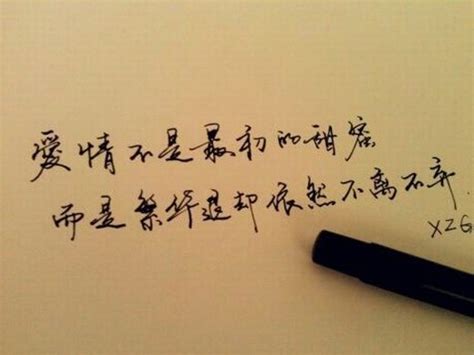 愛情不是最初的甜蜜
而是繁华退却依然不离不弃
XZG